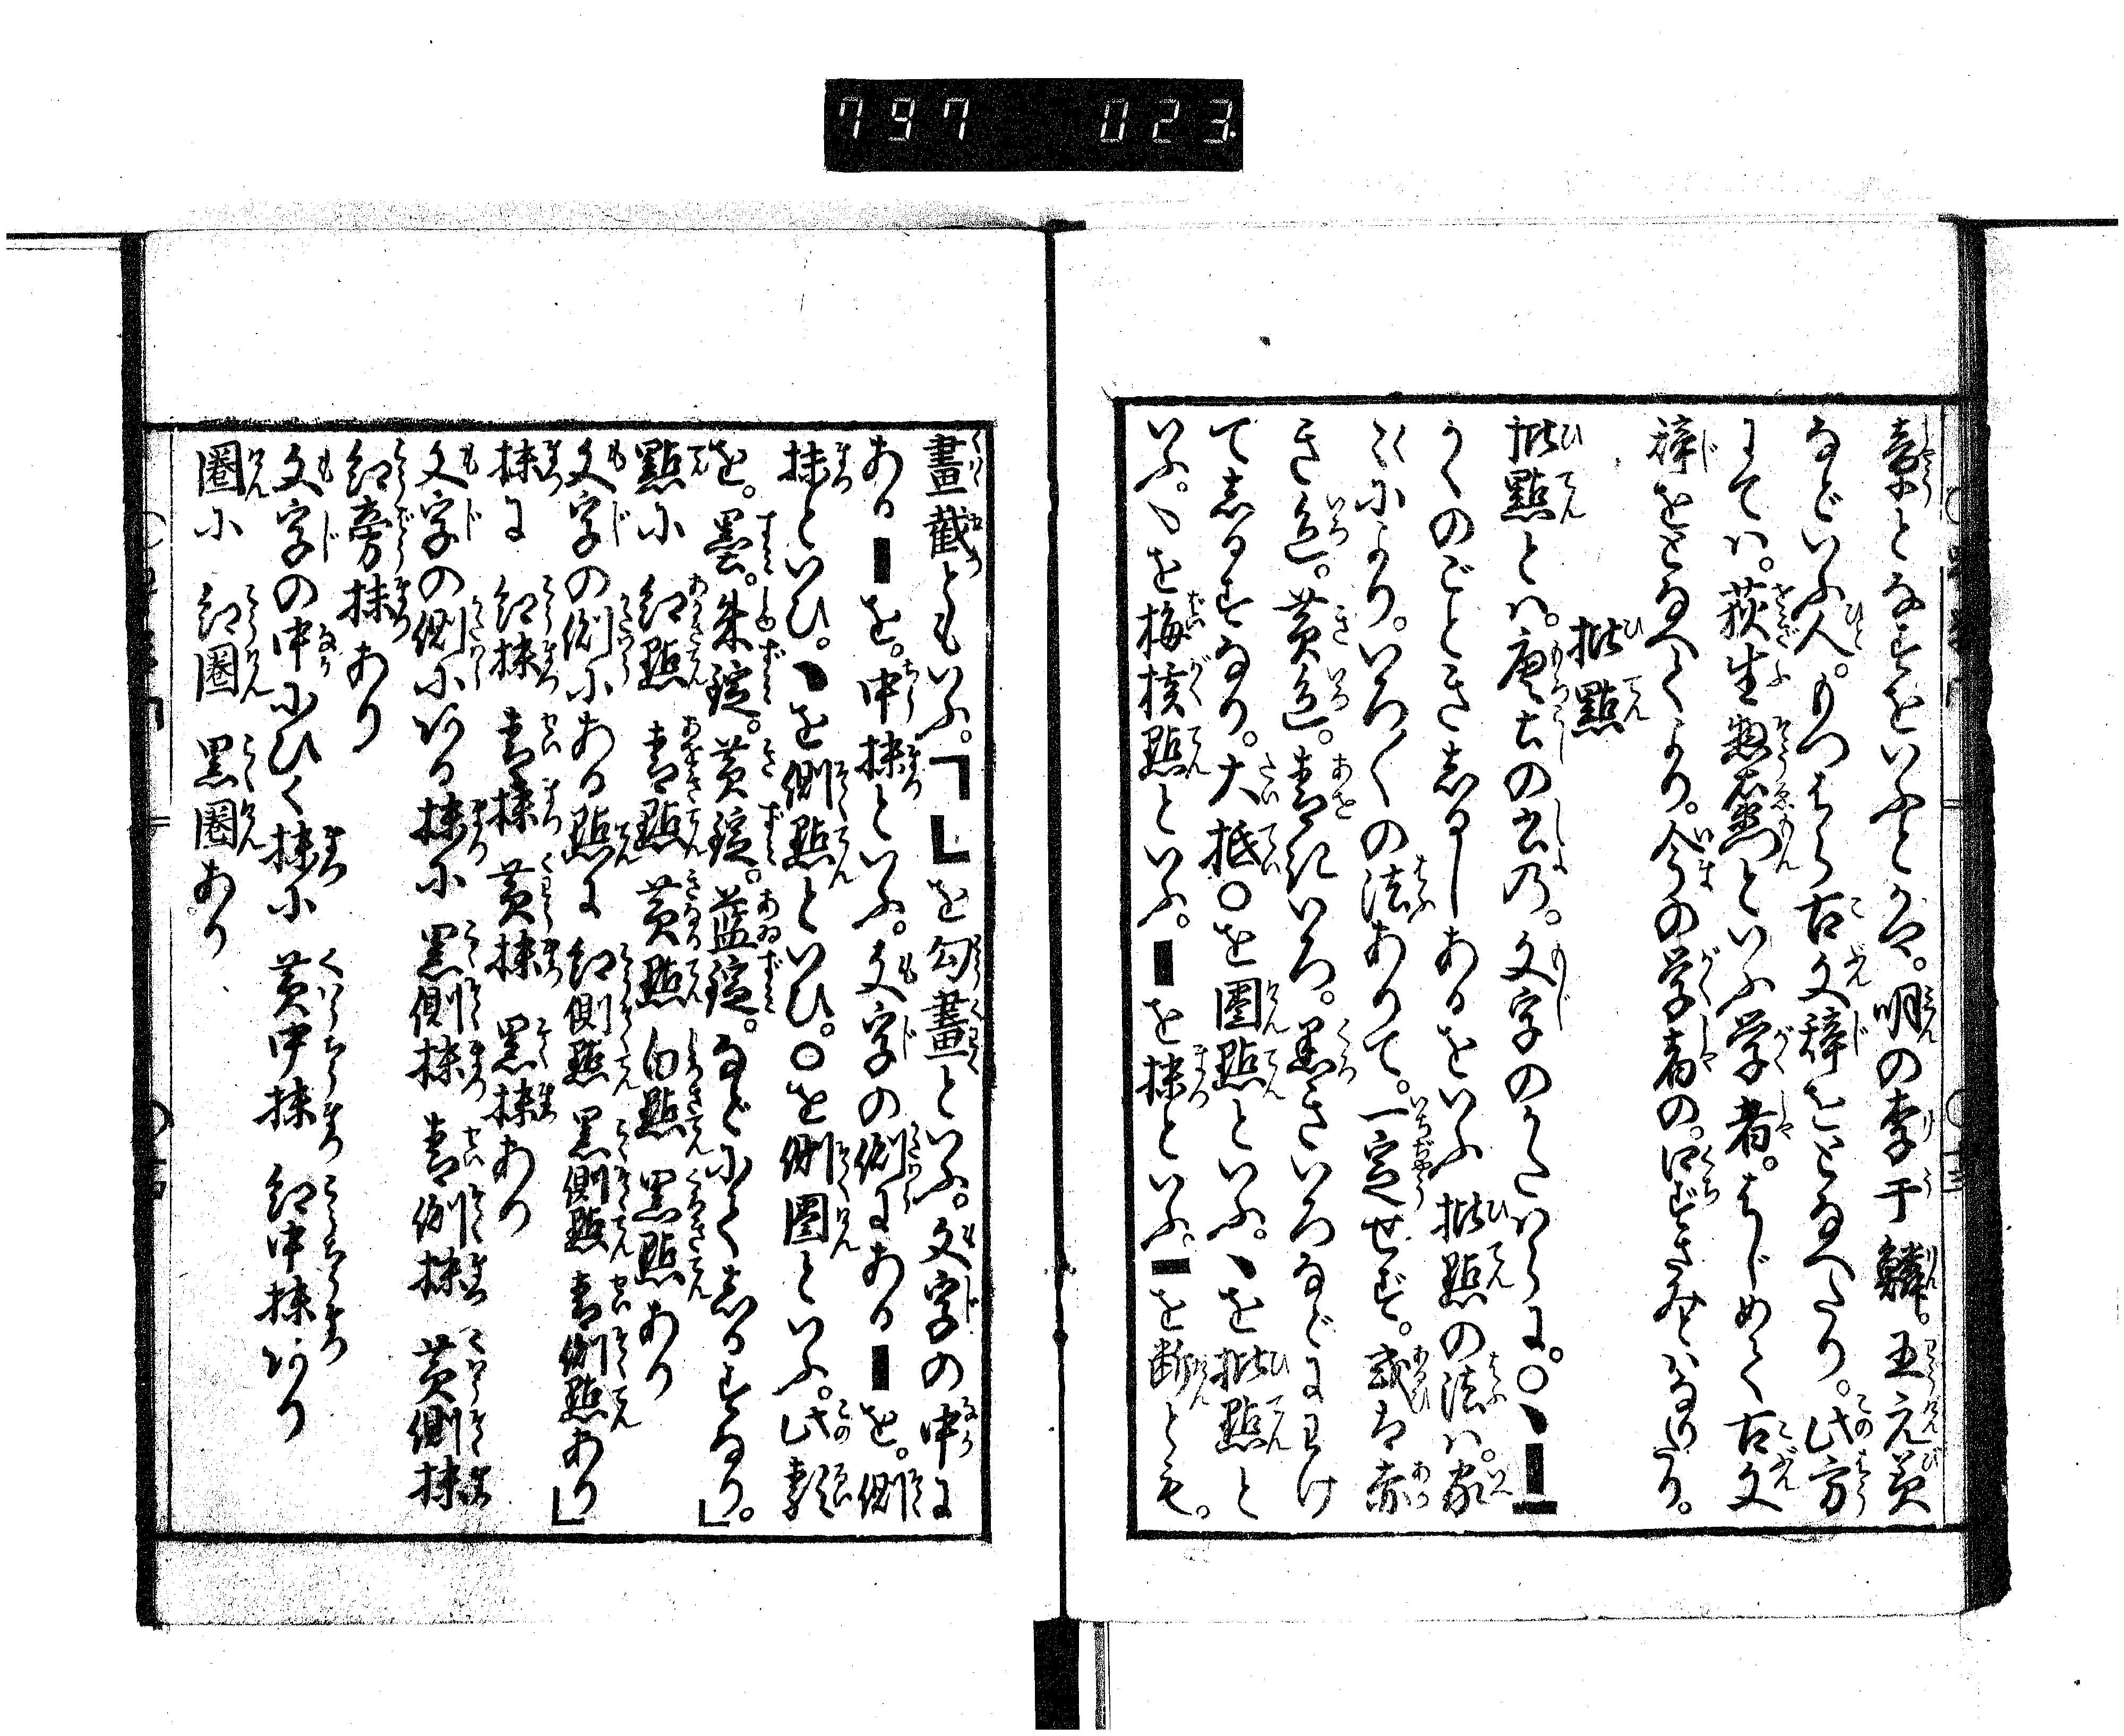 797 023
章となすをいふとかや。明の李于鱗。王元美
などいふ人。もつはら古文辞をとなへたり。此方
にては。荻生惣右衛門といふ学者。はじめて古文
辞をとなへてより。今の学者の。口ずさみとはなりたり。
批點
批點とは。唐土の書の。文字のかたはらに。〇、┃━
かくのごときしるしあるをいふ批點の法は。家
〻によりいろ〳〵の法ありて。一定せず。或は赤
き色。黄色。青きいろ。黒きいろなどにわけ
てしるすなり。大抵〇を圏點といふ。、を批點と
いふ。ヽを梅核點といふ。┃を抹といふ。━を断とも。
畫截ともいふ。┓┗を勾畫といふ。文字の中に
ある┃を。中抹といふ。文字の側にある┃を。側
抹といひ。、を側點といひ。〇を側圏といふ。此類
を。墨。朱錠。黄錠。藍錠。などにてしるすなり。」
點に 紅點 青點 黄點 白點 黒點あり
文字の側にある點に 紅側點 黒側點 青側點あり」
抹に 紅抹 青抹 黄抹 黒抹あり
文字の側にある抹に 黒側抹 青側抹 黄側抹
紅旁抹あり
文字の中にひく抹に 黄中抹 紅中抹あり
圏に 紅圏 黒圏あり